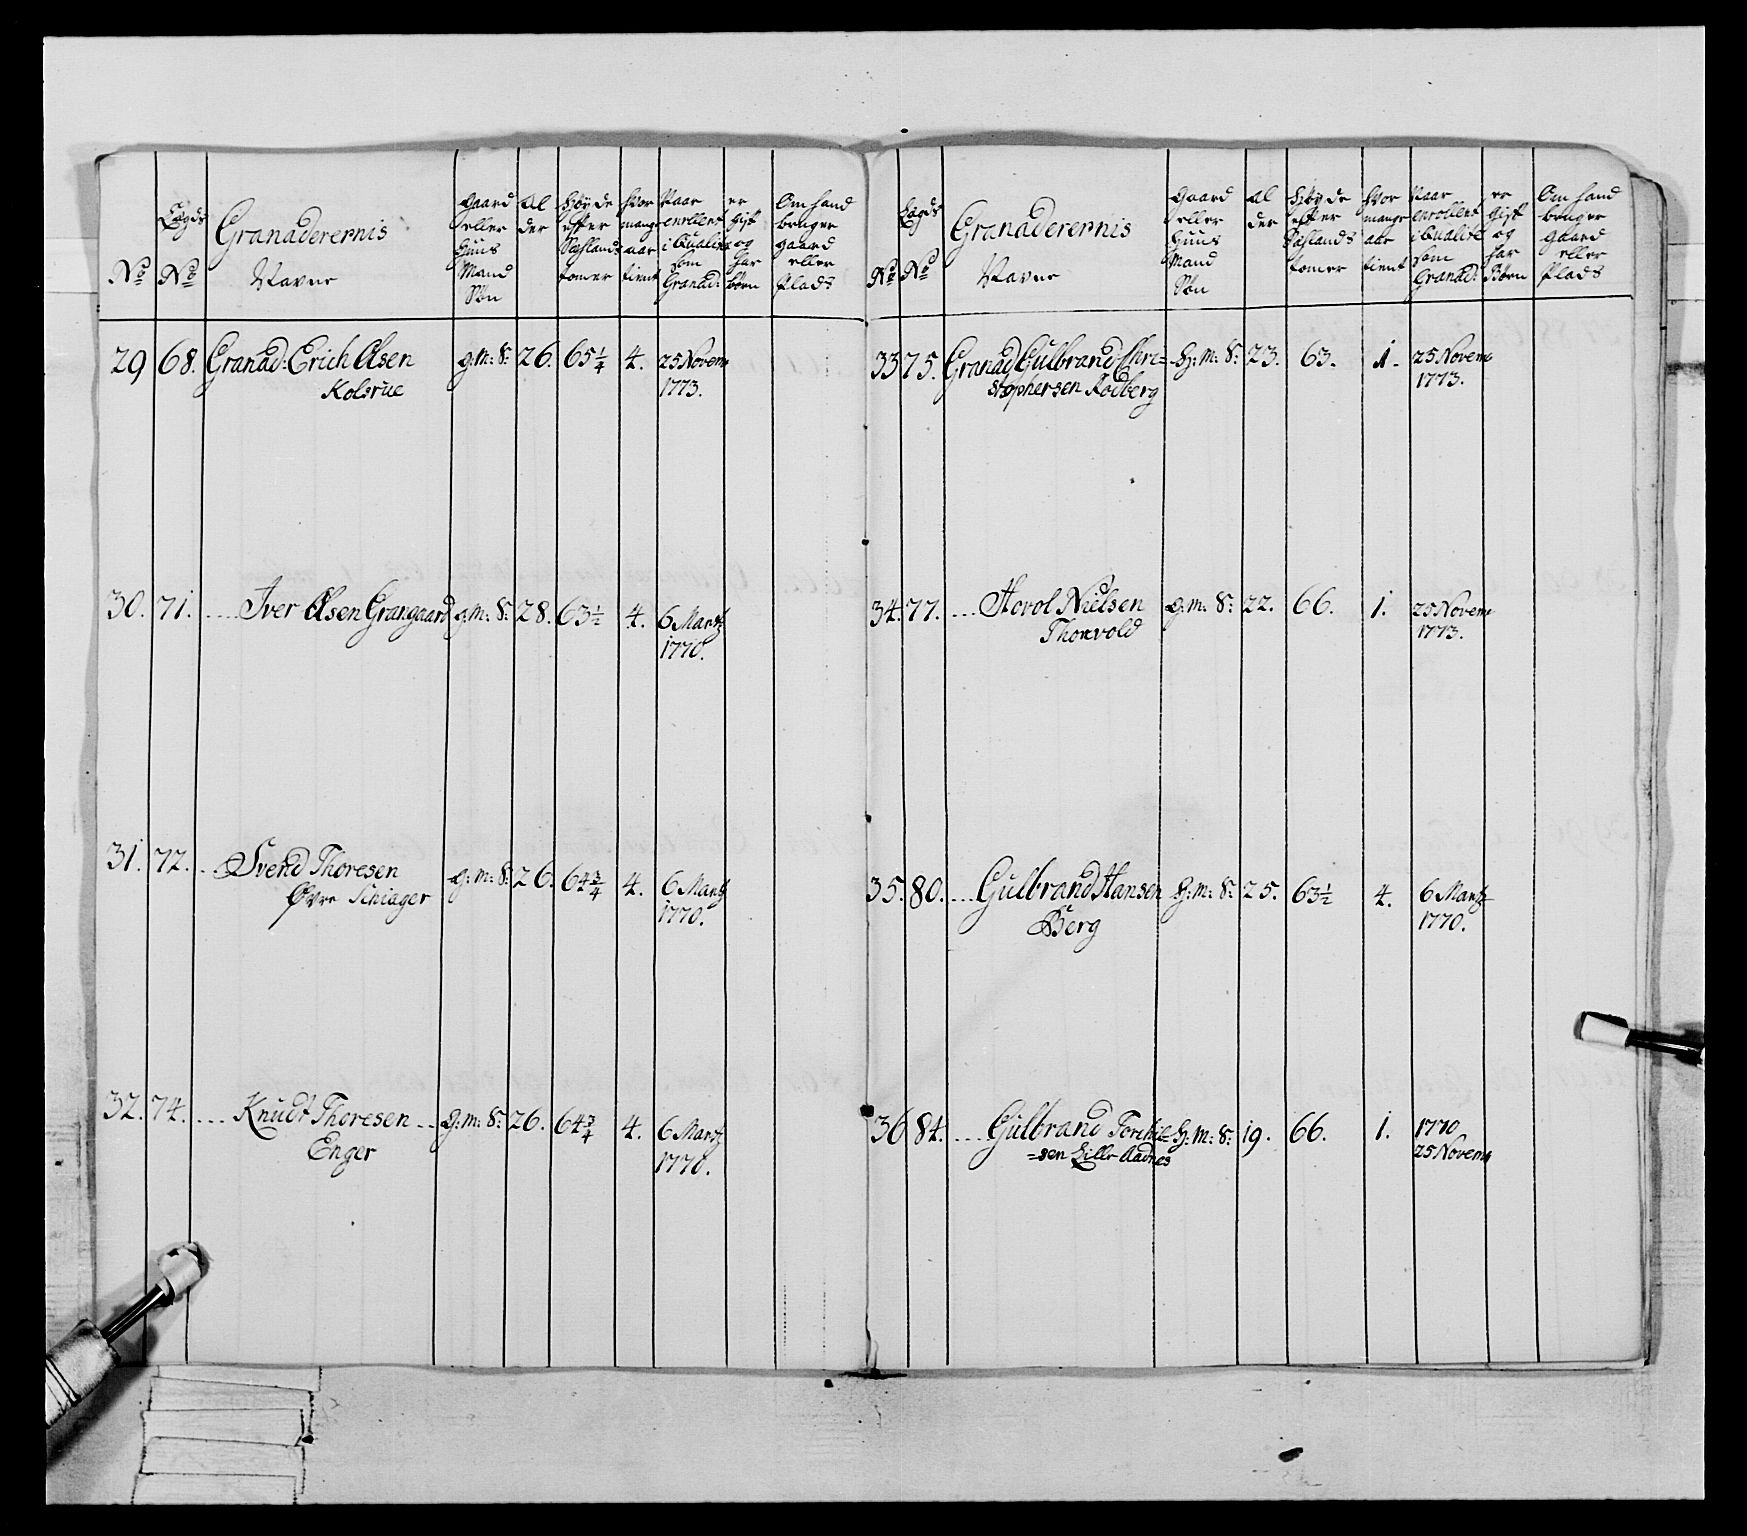 No
Lægds No
Granaderernis Navne
Gaard eller Huus Mand Søn
Al der
Høyde efter Siælands tomer
Hvor mange aar tient
Naar enrollert i Qualite som Granad:
er Gift og har børn
Om hand bruger gaard eller Plads
29 68. Granad: Erich Olsen g: m: S: 26. 65 1/4 4. 25 Novem
Kolsrue 1773.
30. 71. .... Iver Olsen Grangaard g: m: S: 28. 63 1/2 4. 6 Martz
1770.
31. 72. .. Svend Thoresen g: m: S: 26. 64 3/4 4. 6 Martz
Øvre Schiager 1770.
32. 74. .... Knudt Thoresen .. g: m: S: 26. 64 3/4 4. 6 Martz
Enger 1770.
No
Lægds No
Granaderernis Navne
Gaard eller Huus Mand Søn
Al der
Høyde efter Siælands tomer
Hvor mange aar tient
Naar enrollert i Qualite som Granad:
er Gift og har Børn
Om hand bruger gaard eller Plads
33 75. Granad Gulbrand Chri= H: m: S: 23. 63. 1. 25 Novem
stophersen Rodberg 1773.
34. 77. .... Horol Nielsen g: m: S: 22. 66. 1. 25 Novem
Thorvold 1773.
35. 80. .... Gulbrand Hansen H: m: S: 25. 63 1/2 4. 6 Martz
Berg 1770.
36 84. .... Gulbrand Torchil= H: m: S: 19. 66. 1. 1770
=sen Lille Aadnes 25 Novem